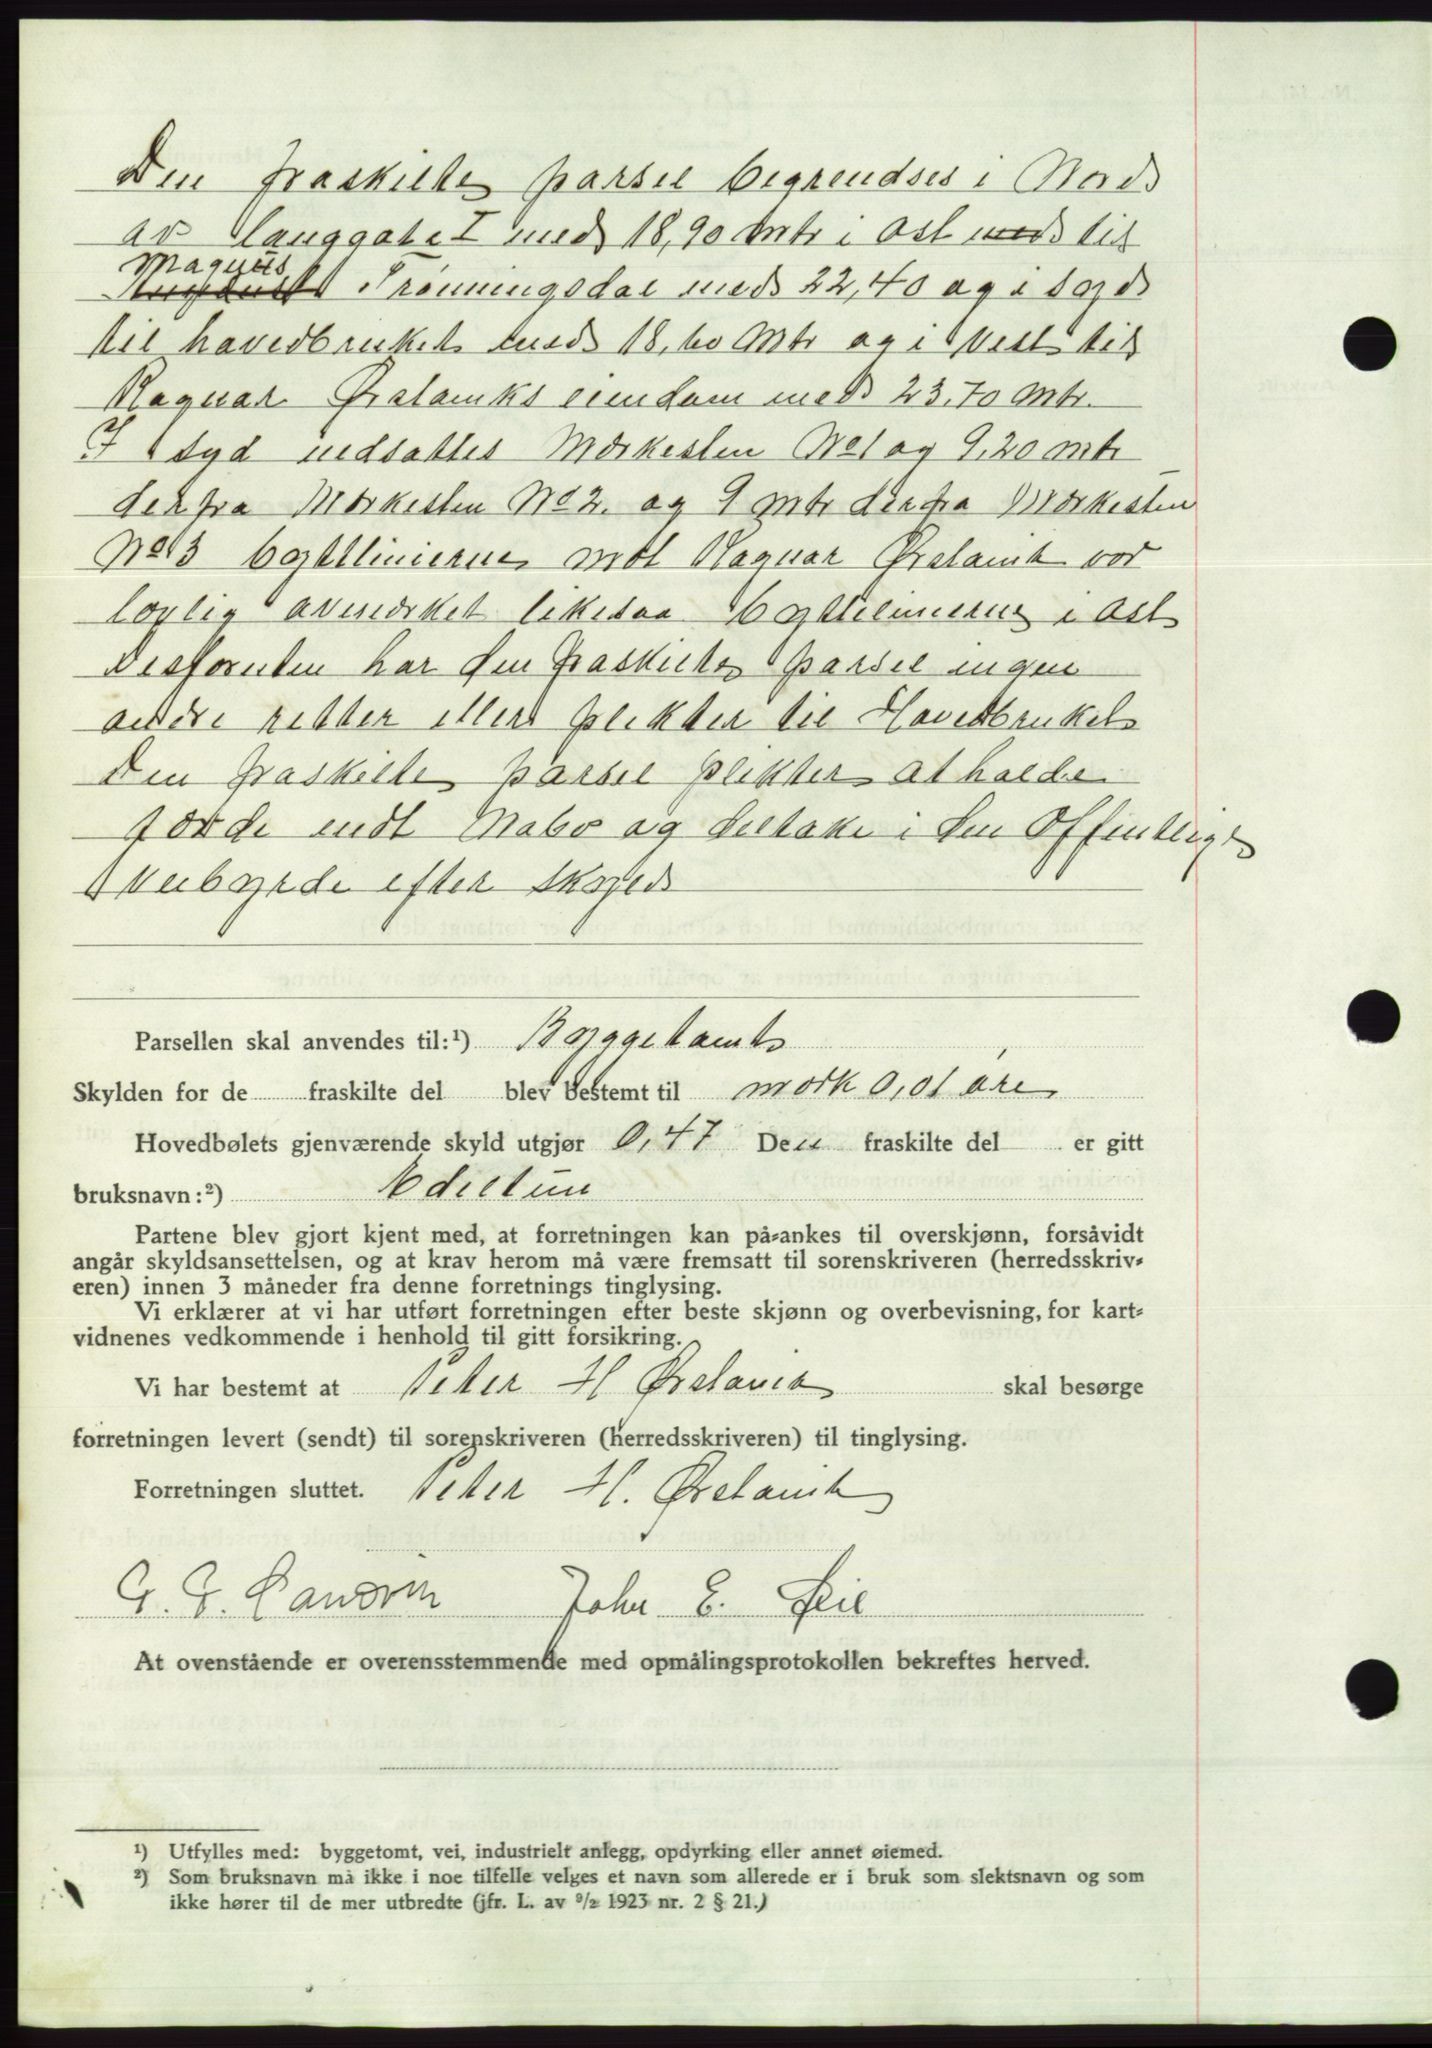 Den fraskilte parsel begrendses i Nord
av langgate I med 18,90 mtr i Ost med til
Magnus
Trønningsdal med 22,40 og i syd
til hovedbruket med 18,60 Mtr og i Vest til
Ragnar Ørstaviks eiendom med 23,70 Mtr.
I syd nedsattes Merkesten No1 og 9,20 mtr
derfra Merkesten No2. og 9 mtr derfra Merkesten
No3 byttlinierne mot Ragnar Ørstavik var
lovlig avmerket likesaa byttelinierne i Ost
Desforuten har den fraskilte parsel ingen
andre retter eller plikter til Hovedbruket
Den fraskilte parsel plikter at holde
gjerde mot Nabo og deltake i den Offentlige
Veibyrde efter skyld
Parsellen skal anvendes til:¹) Byggetomt
Skylden for de fraskilte del blev bestemt til mark 0,01 øre
Hovedbølets gjenværende skyld utgjør 0,47 Den fraskilte del er gitt
bruksnavn:²) Edeltun
Partene blev gjort kjent med, at forretningen kan på-ankes til overskjønn, forsåvidt
angår skyldsansettelsen, og at krav herom må være fremsatt til sorenskriveren (herredsskriv-
eren) innen 3 måneder fra denne forretnings tinglysing.
Vi erklærer at vi har utført forretningen efter beste skjønn og overbevisning, for kart-
vidnenes vedkommende i henhold til gitt forsikring.
Vi har bestemt at Peter H Ørstavik skal besørge
forretningen levert (sendt) til sorenskriveren (herredsskriveren) til tinglysing.
Forretningen sluttet. Peter H. Ørstavik
John E.
At ovenstående er overensstemmende med opmålingsprotokollen bekreftes herved.
¹) Utfylles med: byggetomt, vei, industrielt anlegg, opdyrking eller annet øiemed.
²) Som bruksnavn må ikke i noe tilfelle velges et navn som allerede er i bruk som slektsnavn og som
ikke hører til de mer utbredte (jfr. L. av ⁹/₂ 1923 nr. 2 § 21.)